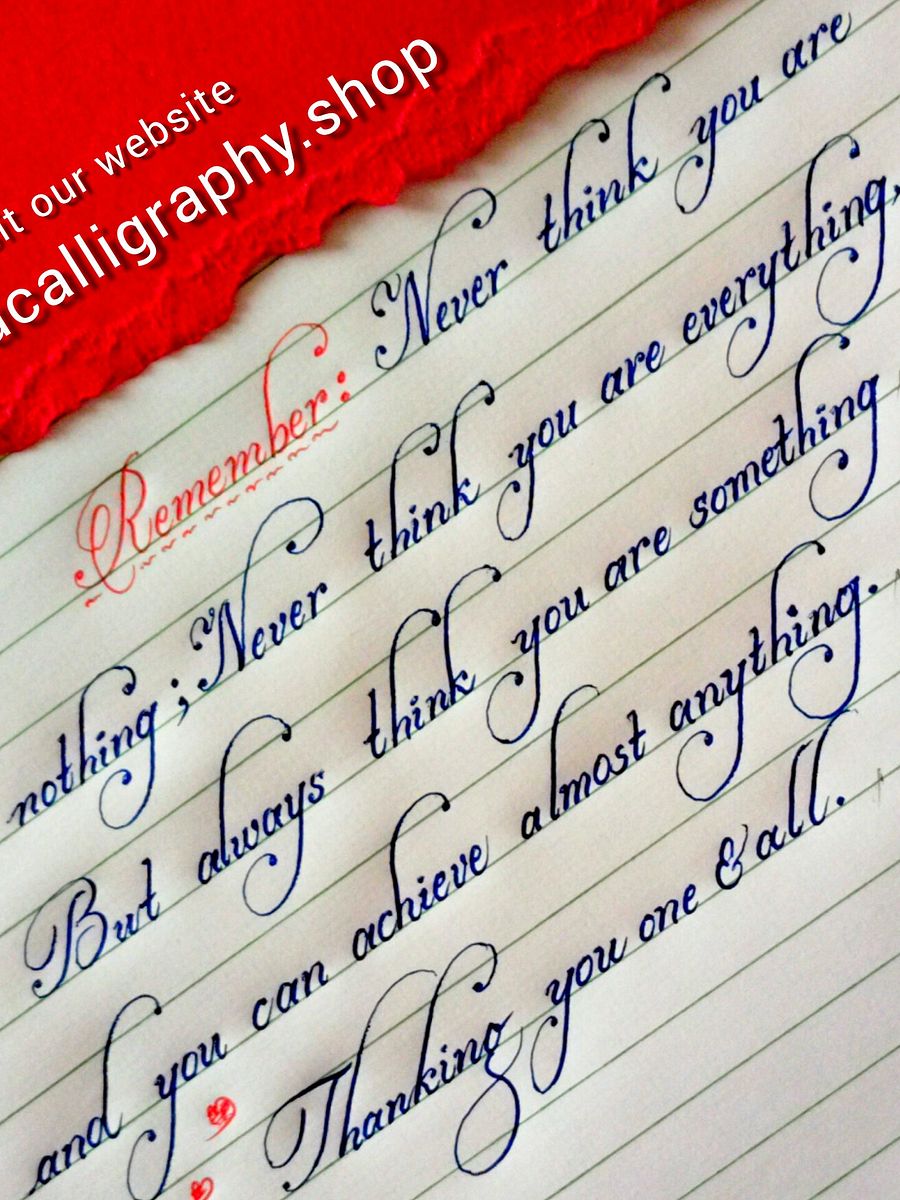 our website
calligraphy.shop
Remember: Never think you are
nothing; Never think you are everything,
But always think you are something
and you can achieve almost anything.
Thanking you one & all.